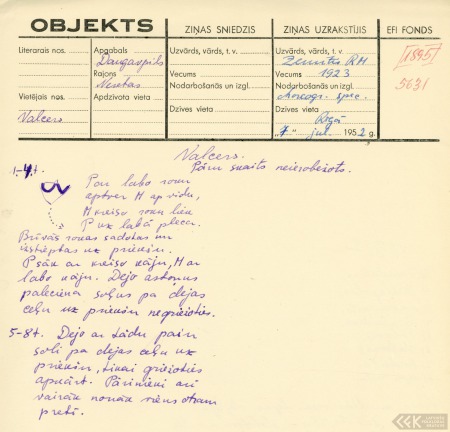 OBJEKTS
ZIŅAS SNIEDZIS
ZIŅAS UZRAKSTĪJIS
EFI FONDS
Literarais nos.
Vietējais nos.
Valcers
Apgabals
Daugavpils
Rajons
Neretas
Apdzīvota vieta
Uzvārds, vārds, t. v.
Vecums
Nodarbošanās un izgl.
Dzīves vieta
Uzvārds, vārds, t. v.
Vecums 1923
Nodarbošanās un izgl.
choreogr. spec.
Dzīves vieta Rīgā
"7" jul. 1952 g.
1895
5631
Valcers.
Pāru skaits neierobežots.
1-4t.
P ar labo roku
aptver M ap vidu,
M kreiso roku liek
P uz labā pleca.
Brīvās rokas sadotas un
izstieptas uz priekšu.
P sāk ar kreiso kāju, M ar
labo kāju. Dejo astoņus
palēciena soļus pa dejas
ceļu uz priekšu negriežoties.
5-8t. Dejo ar tādu pašu
soli pa dejas ceļu uz
priekšu, tikai griežoties
apkārt. Pārinieki arī
vairāk nonāk viens otram
pretī.
LFK